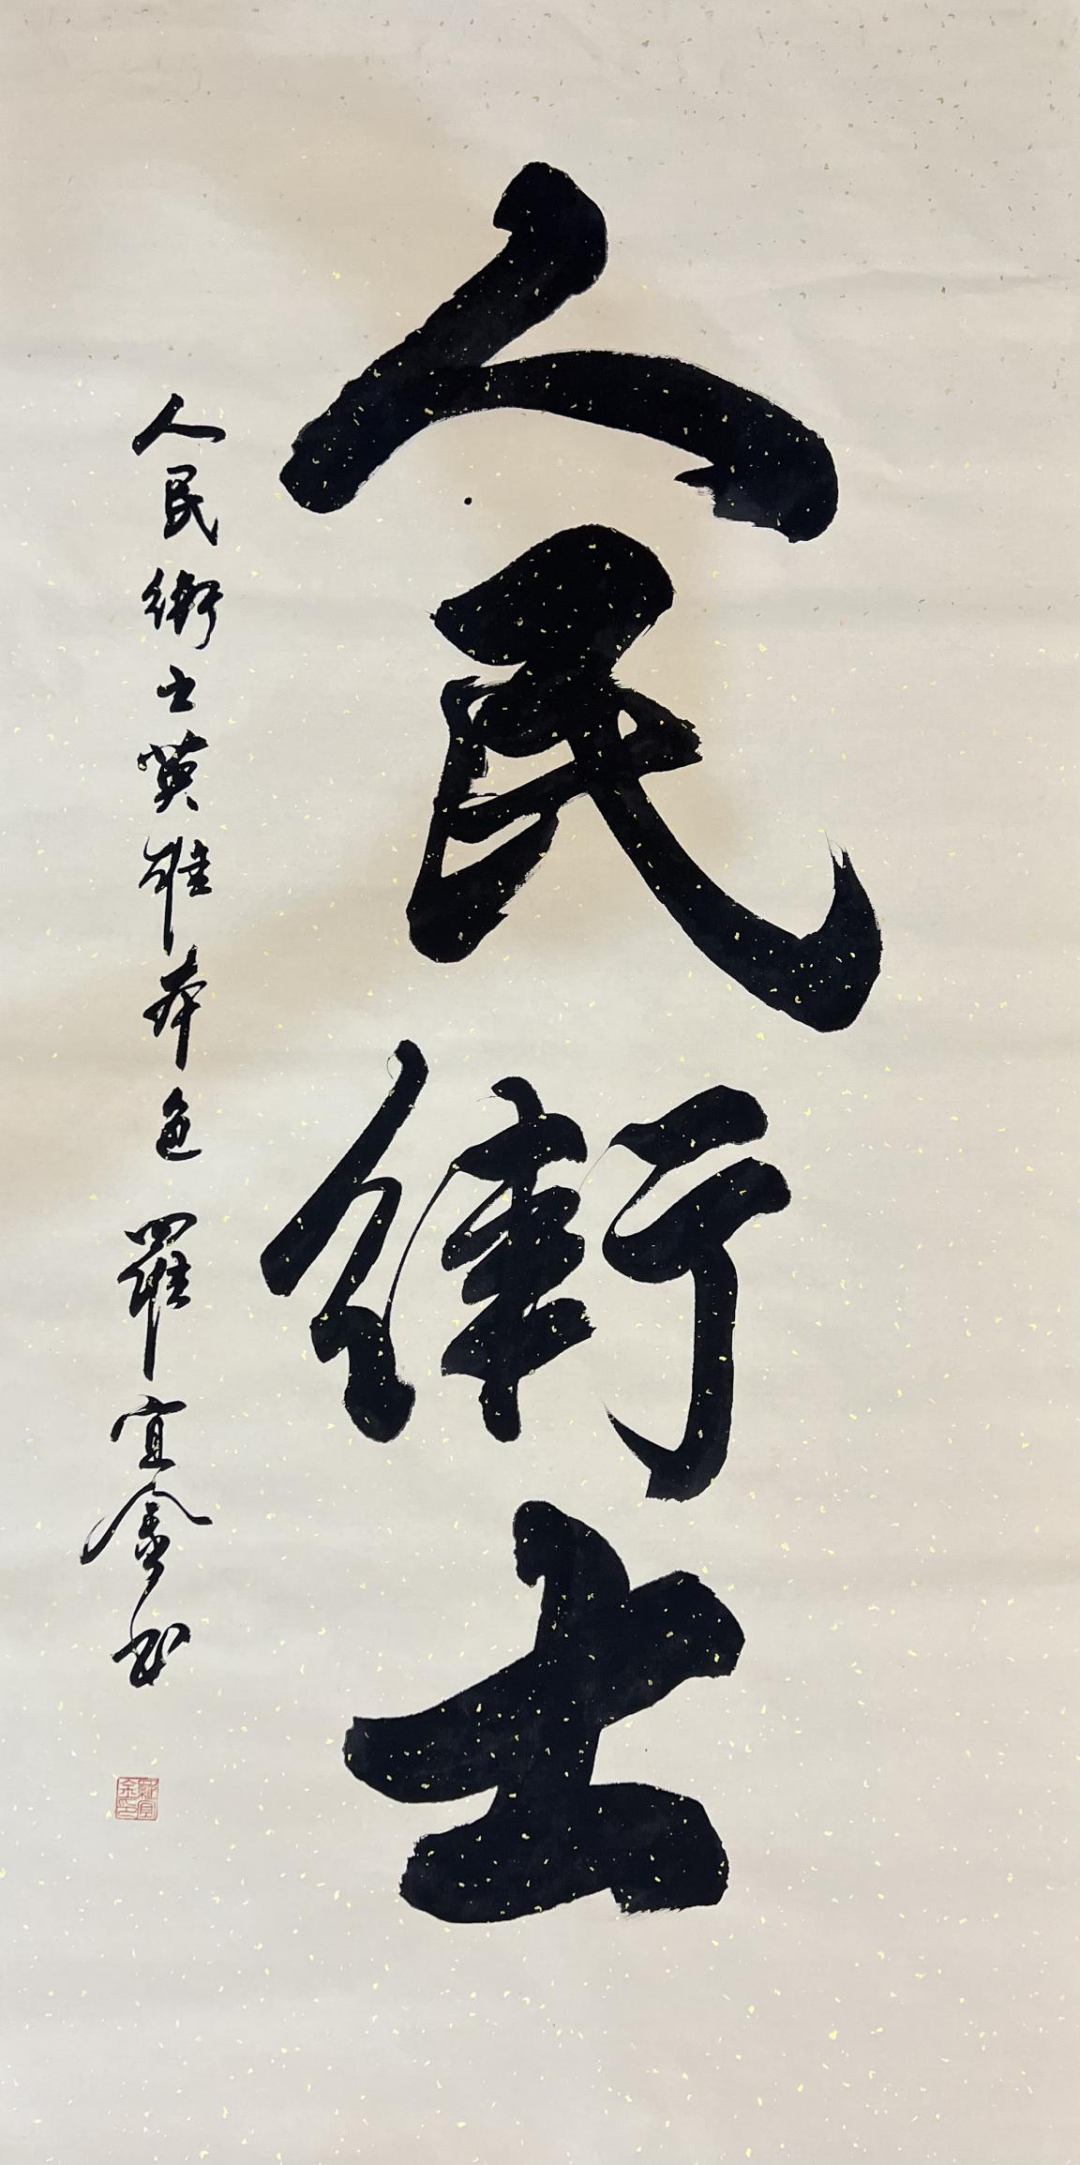 人民衛士
人民衛士英雄本色 羅宜金书